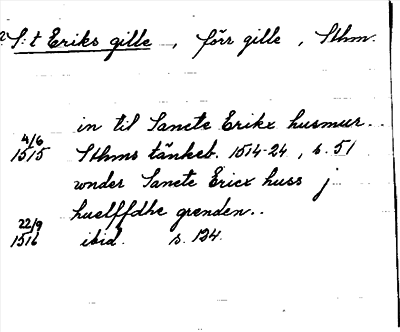 S:t Eriks gille, förr gille, Sthm.
in til Sancte Erikx husmur..
4/6
1515 Sthms tänkeb. 1514-24, s. 51
wnder Sancte Ericx huss j
huelffdhe grenden..
22/9
1516 ibid. s. 124.